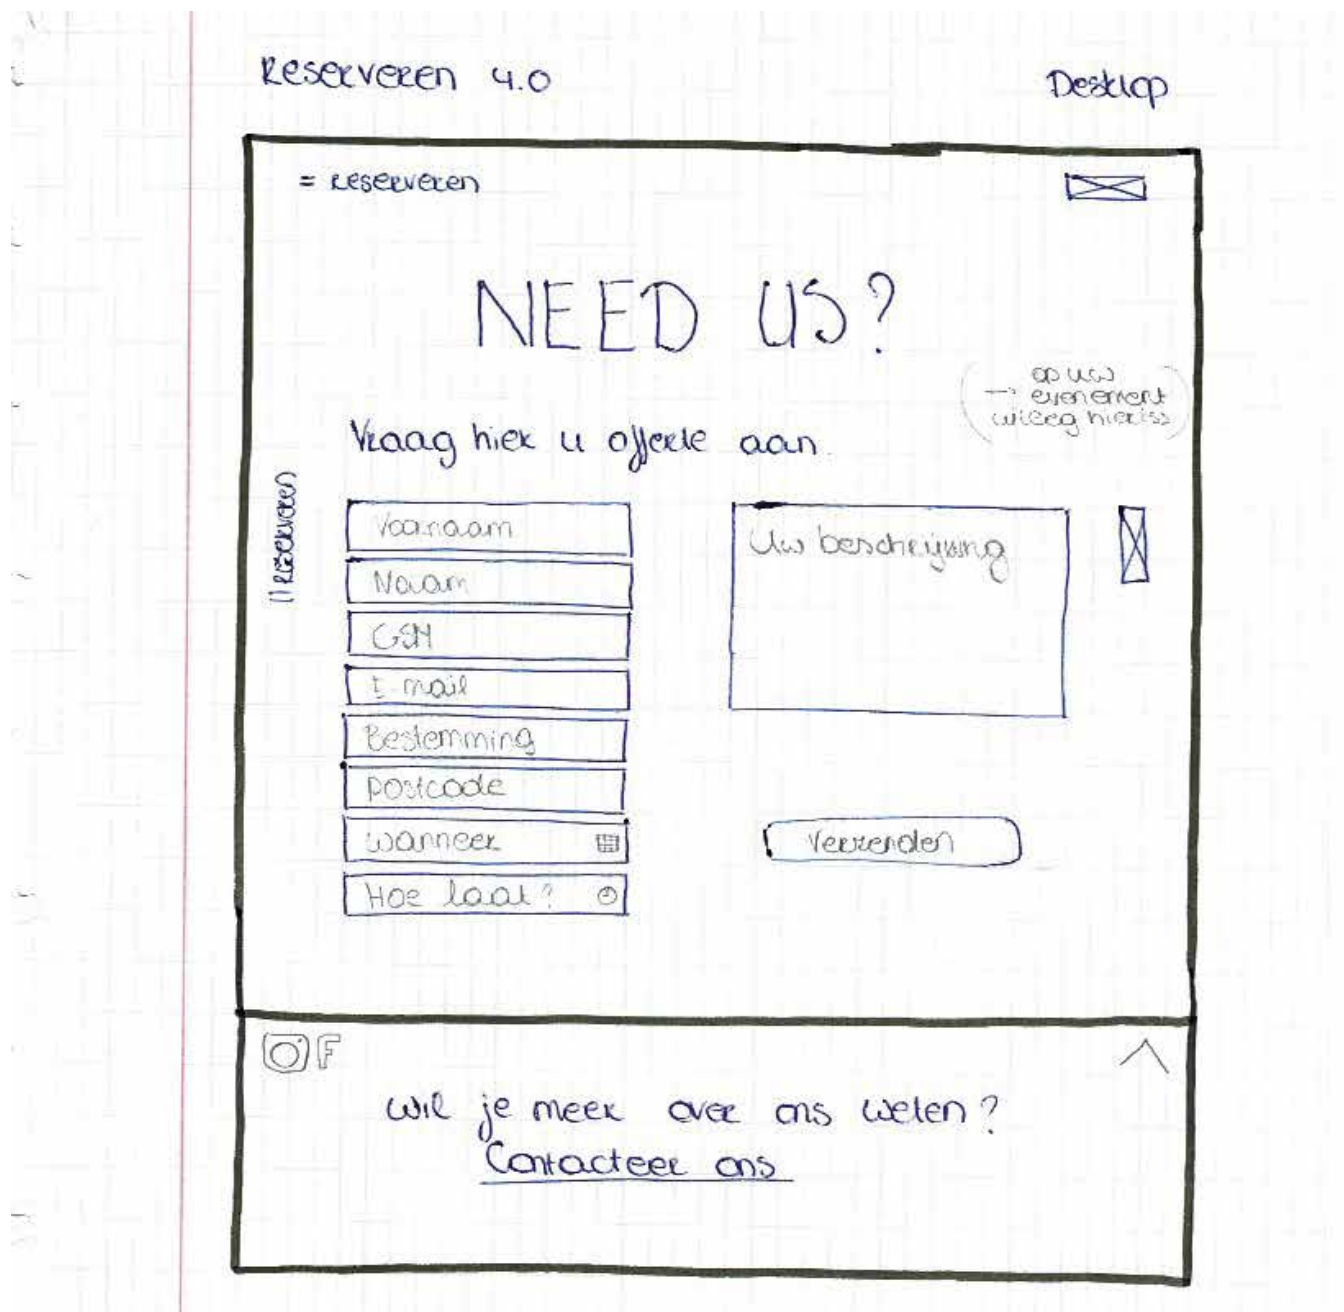 Reserveren 4.0
Desktop
= Reserveren
NEED US?
op uw
→ evenement
Vraag hier u offerte aan.
// Reserveren
Voornaam
Naam
GSM
E-mail
Bestemming
Postcode
Wanneer
Hoe laat?
Uw beschrijving
Verzenden
F
Wil je meer over ons weten?
Contacteer ons